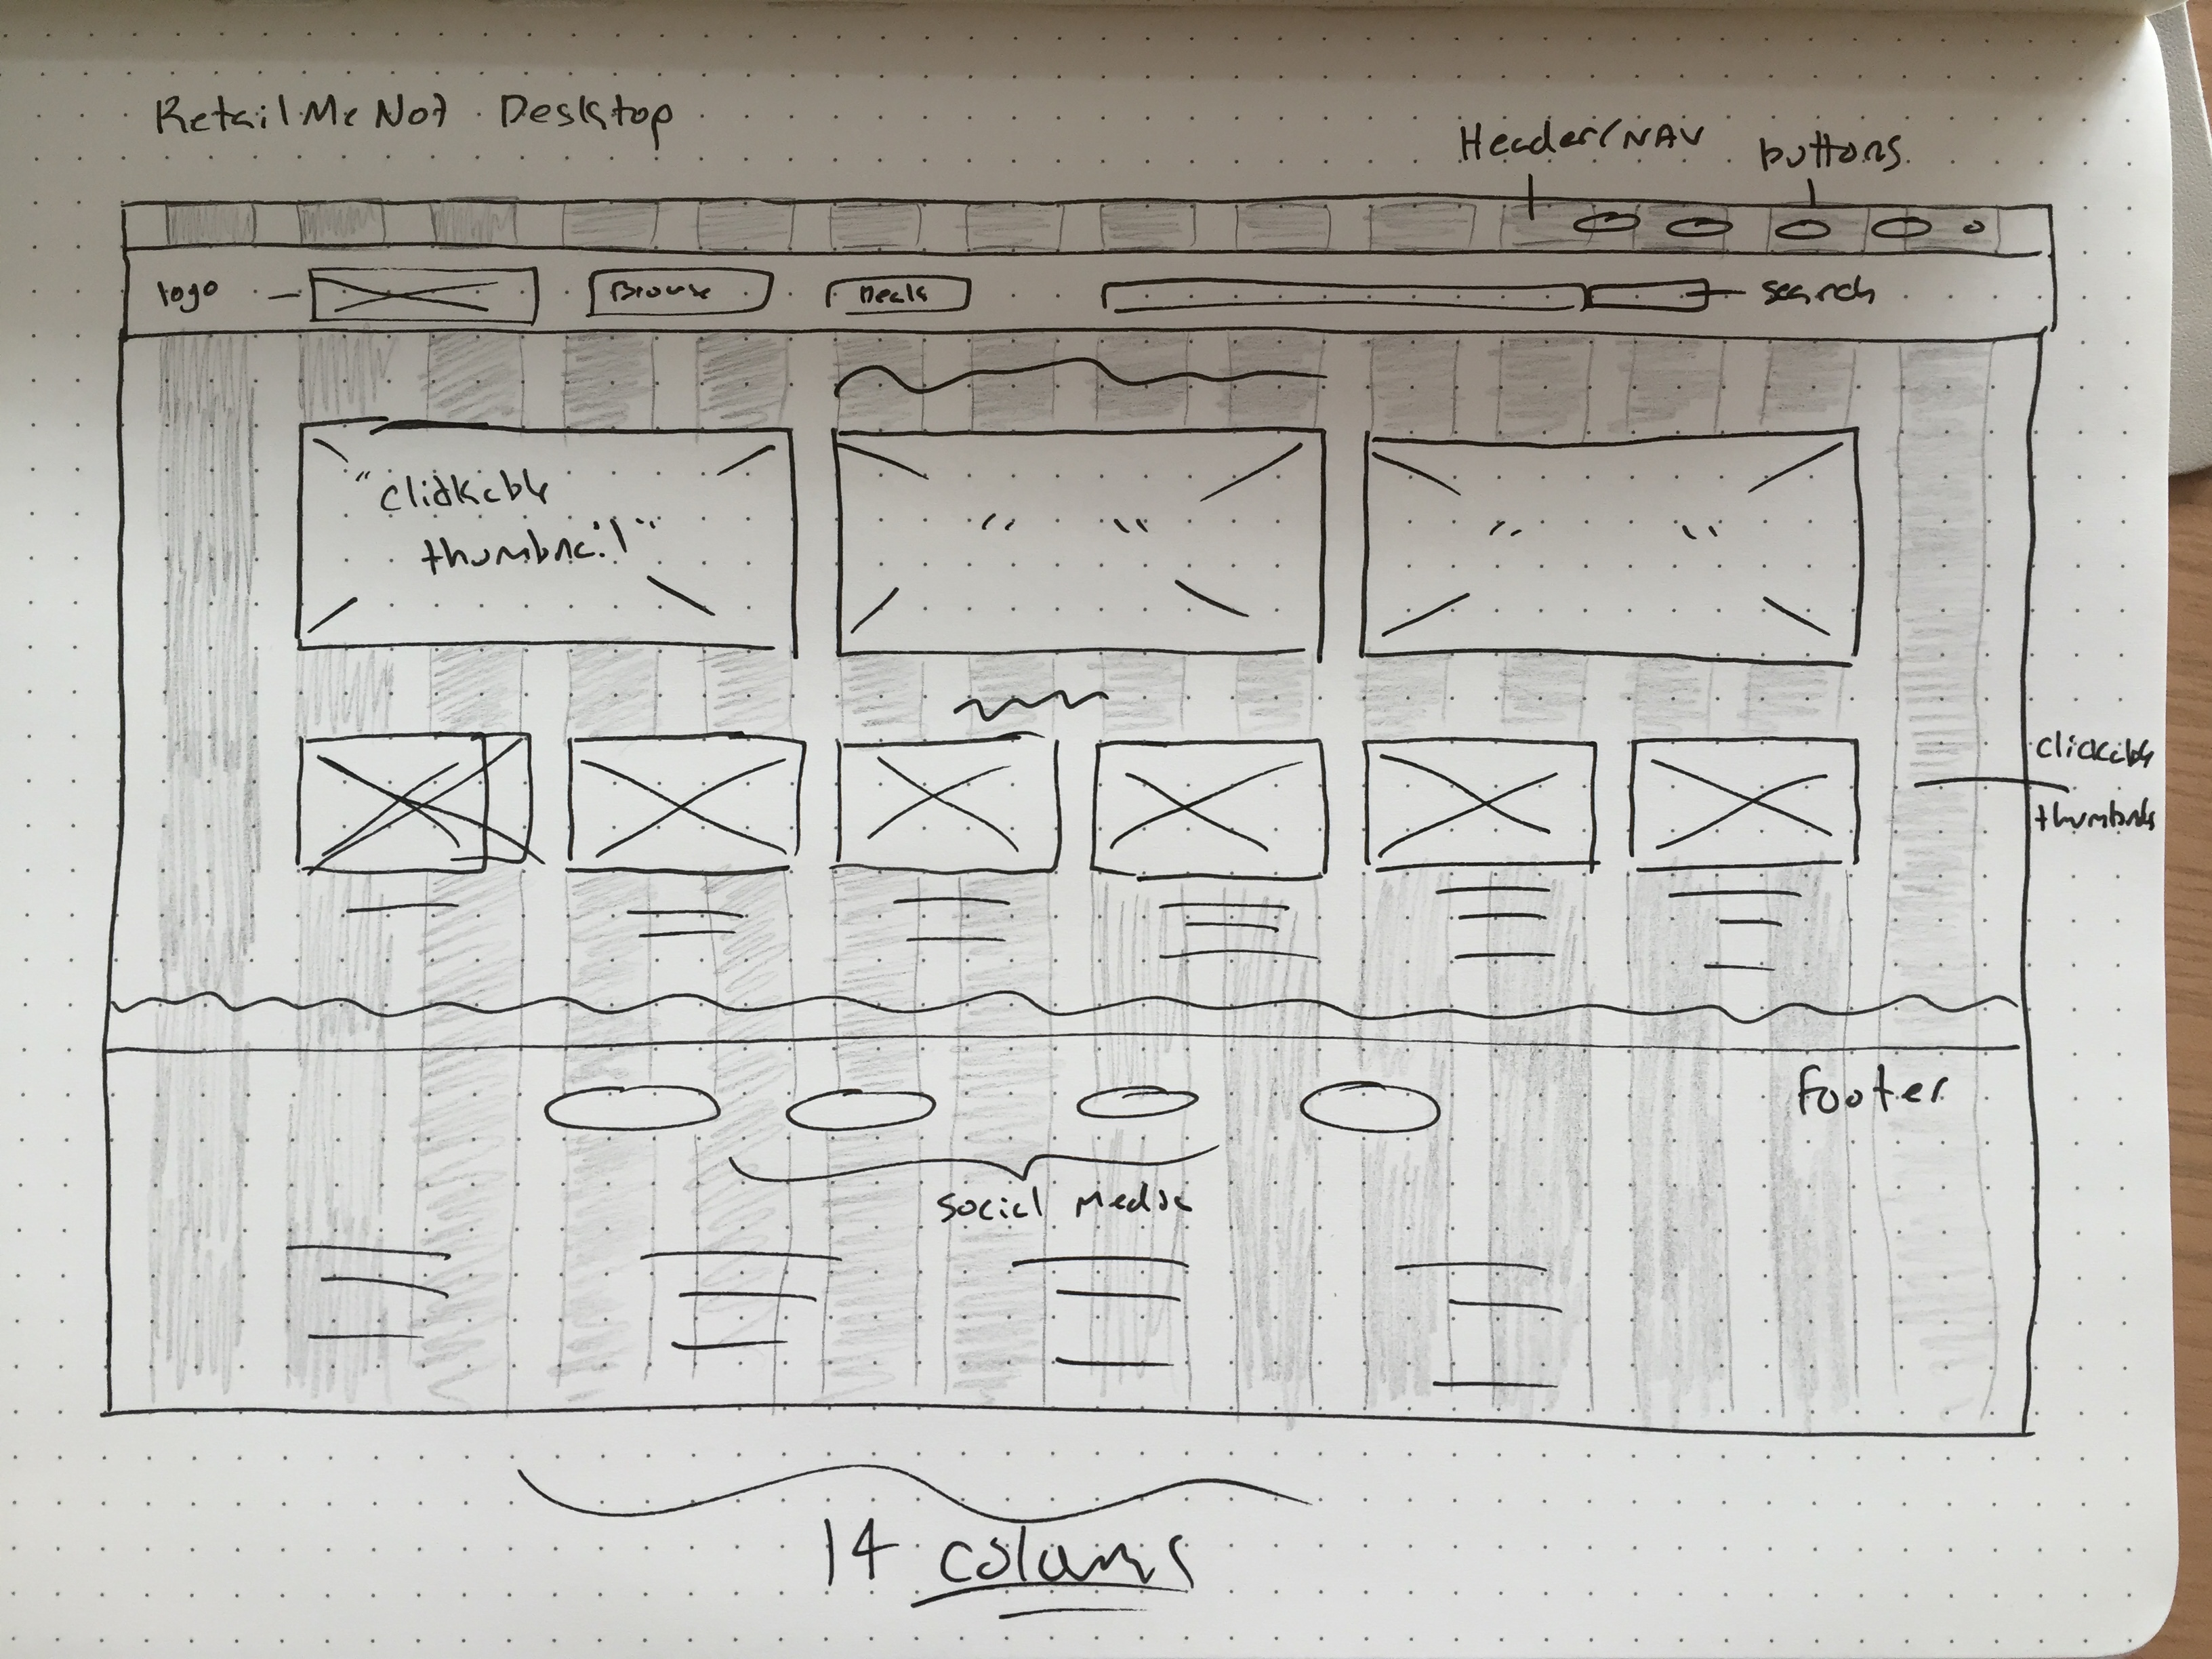 RetailMeNot Desktop
Header/NAV
buttons
logo
Browse
Deals
search
"clickable
thumbnail"
" "
" "
clickable
thumbnails
Footer
social media
14 columns